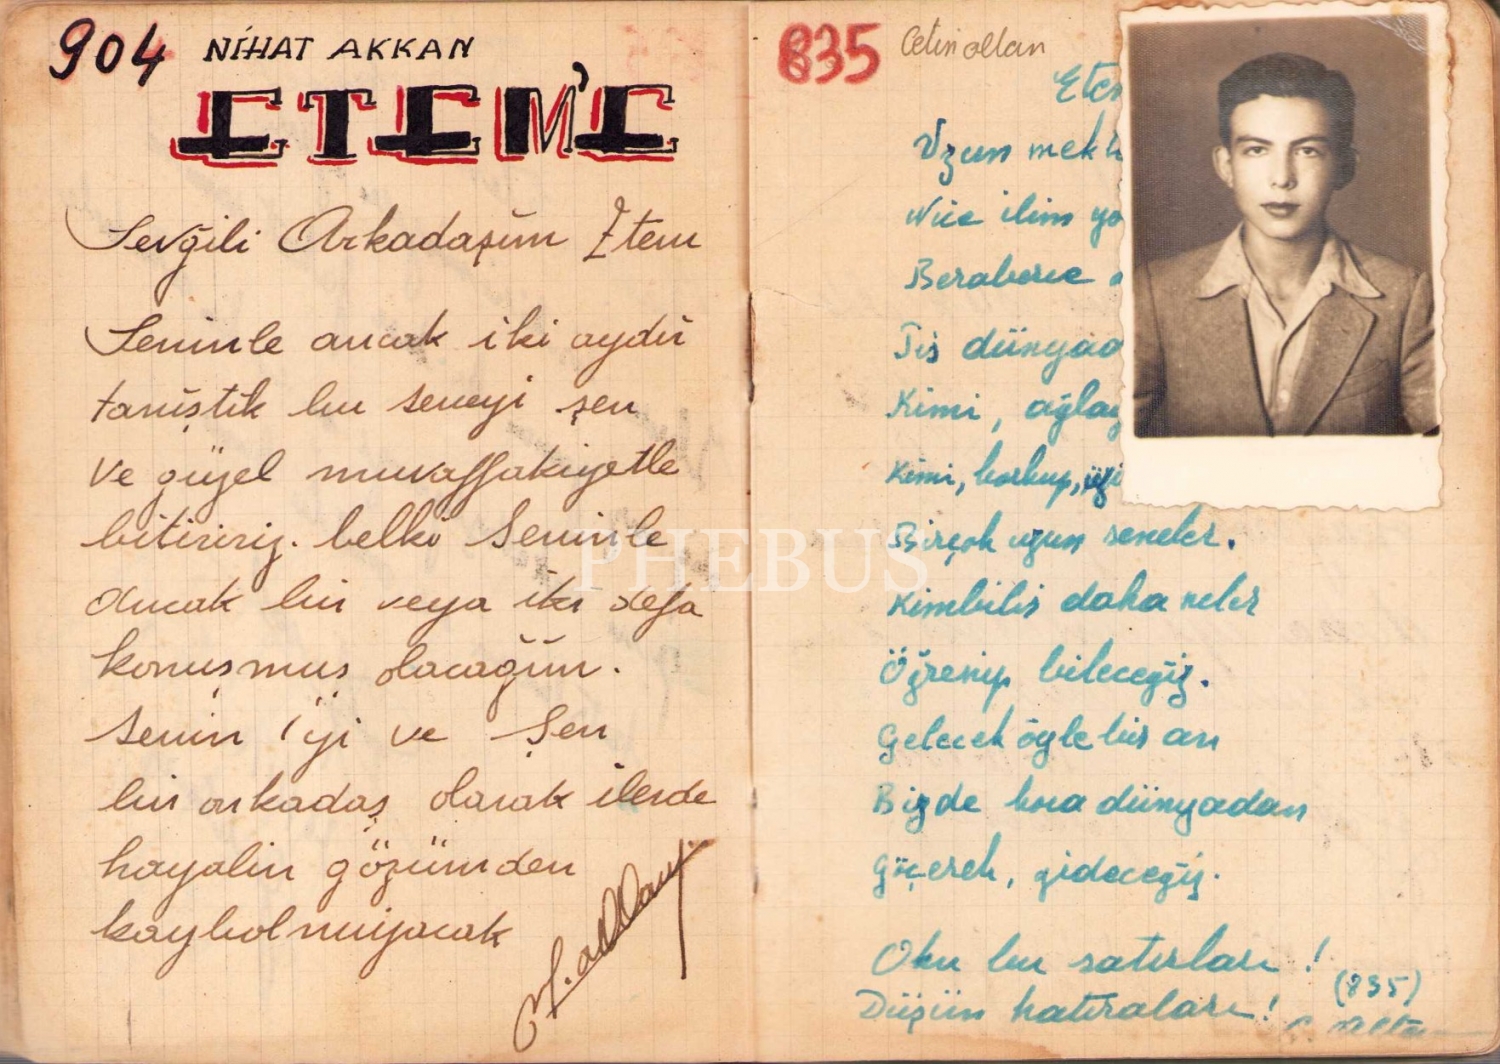 904 NİHAT AKKAN
ETEM'E
Sevğili Arkadaşım Etem
Seninle ancak iki aydır
tanıştık bu seneyi şen
ve güzel muvaffakiyetle
bitiririz. belki seninle
ancak bir veya iki defa
konuşmuş olacağım.
senin iyi ve şen
bir arkadaş olarak ilerde
hayalin gözümden
kaybolmıyacak
N. Akkan
835 Cetin altan
Etem
Uzun mekt
Nice ilim yo
Beraberce
Pis dünyad
Kimi, ağlay
Kimi, korkup,
Birçok uzun seneler.
Kimbilir daha neler
Öğrenip bileceğiz.
Gelecek öyle bir an
Bizde kora dünyadan
Göçerek, gideceğiz.
Oku bu satırları!
Düşün hatıraları!
(835)
PHEBUS